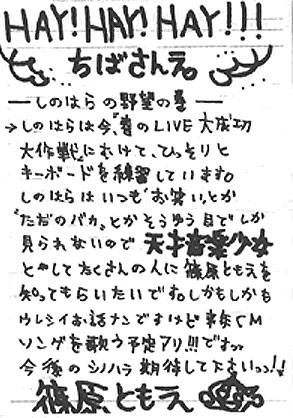 HAY! HAY! HAY!!!
ちばさんえ。
―しのはらの野望の巻―
→しのはらは今、"春のLIVE大成功
大作戦"にむけて、ひっそりと
キーボードを練習しています。
しのはらはいつも"お笑い"とか
"ただのバカ"とかそうゆう目でしか
見られないので天才音楽少女
としてたくさんの人に篠原ともえを
知ってもらいたいです。しかもしかも
ウレシイお話ナンですけど来年CM
ソングを歌う予定アリ!!!ですっ
今後のシノハラ期待して下さいっっ!!
篠原ともえ